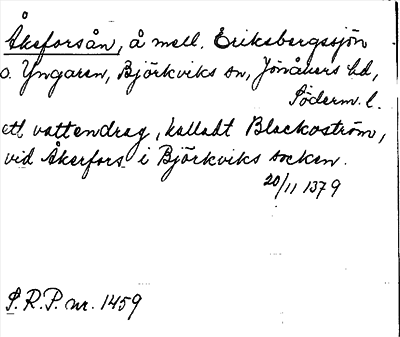 Åkeforsån, å mell. Eriksbergssjön
o. Yngaren, Björkviks sn, Jönåkers hd,
Söderm. l.
ett vattendrag, kalladt Blackoström,
vid Åkerfors i Björkviks socken.
20/11 1379
S.R.P. nr. 1459